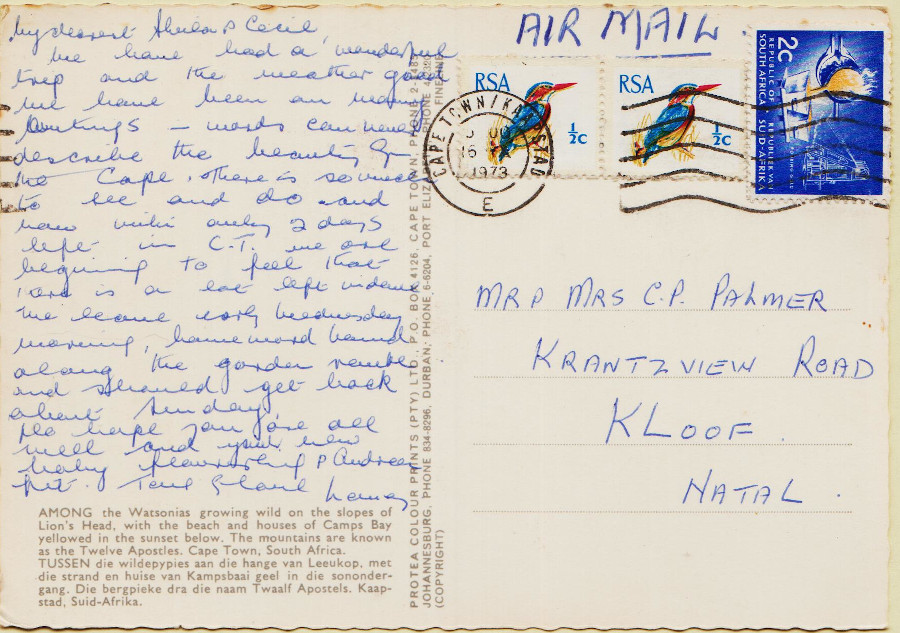 My dearest Sheila & Cecil
We have had a wonderful
trip and the weather good
we have been on many
outings – words can never
describe the beauty of
the Cape, there is so much
to see and do and
now with only 2 days
left in C.T. we are
begining to feel that
there is a lot left
we leave early Wednesday
morning, homeward bound
along the garden route
and should get back
about Sunday.
Do hope you are all
well and your new
baby flourishing & Andrea
fit.
AMONG the Watsonias growing wild on the slopes of
Lion's Head, with the beach and houses of Camps Bay
yellowed in the sunset below. The mountains are known
as the Twelve Apostles. Cape Town, South Africa.
TUSSEN die wildepypies aan die hange van Leeukop, met
die strand en huise van Kampsbaai geel in die sononder-
gang. Die bergpieke dra die naam Twaalf Apostels. Kaap-
stad, Suid-Afrika.
PROTEA COLOUR PRINTS (PTY) LTD., P.O. BOX 4126, CAPE TOWN, PHONE
JOHANNESBURG, PHONE 834-8296, DURBAN, PHONE 6-6204, PORT ELIZ
(COPYRIGHT)
AIR MAIL
RSA
½c
RSA
½c
2c
REPUBLIC OF
SOUTH AFRICA
REPUBLIEK VAN
SUID-AFRIKA
CAPE TOWN/KAAPSTAD
1973
E
MR & MRS C.P. PALMER
KRANTZVIEW ROAD
KLOOF
NATAL